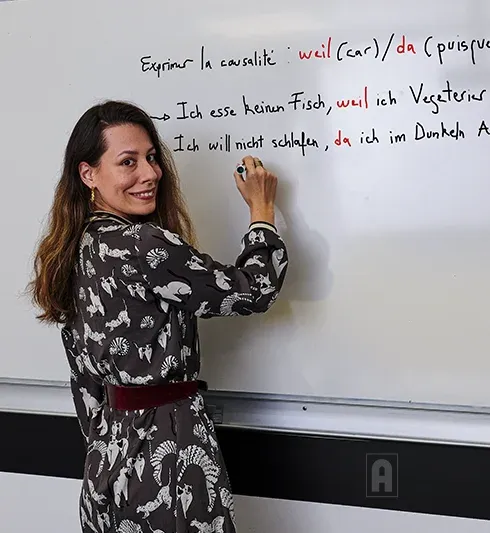 Exprimer la causalité : weil (car)/da (puisque
→ Ich esse keinen Fisch, weil ich Vegetarier
Ich will nicht schlafen, da ich im Dunkeln A
A